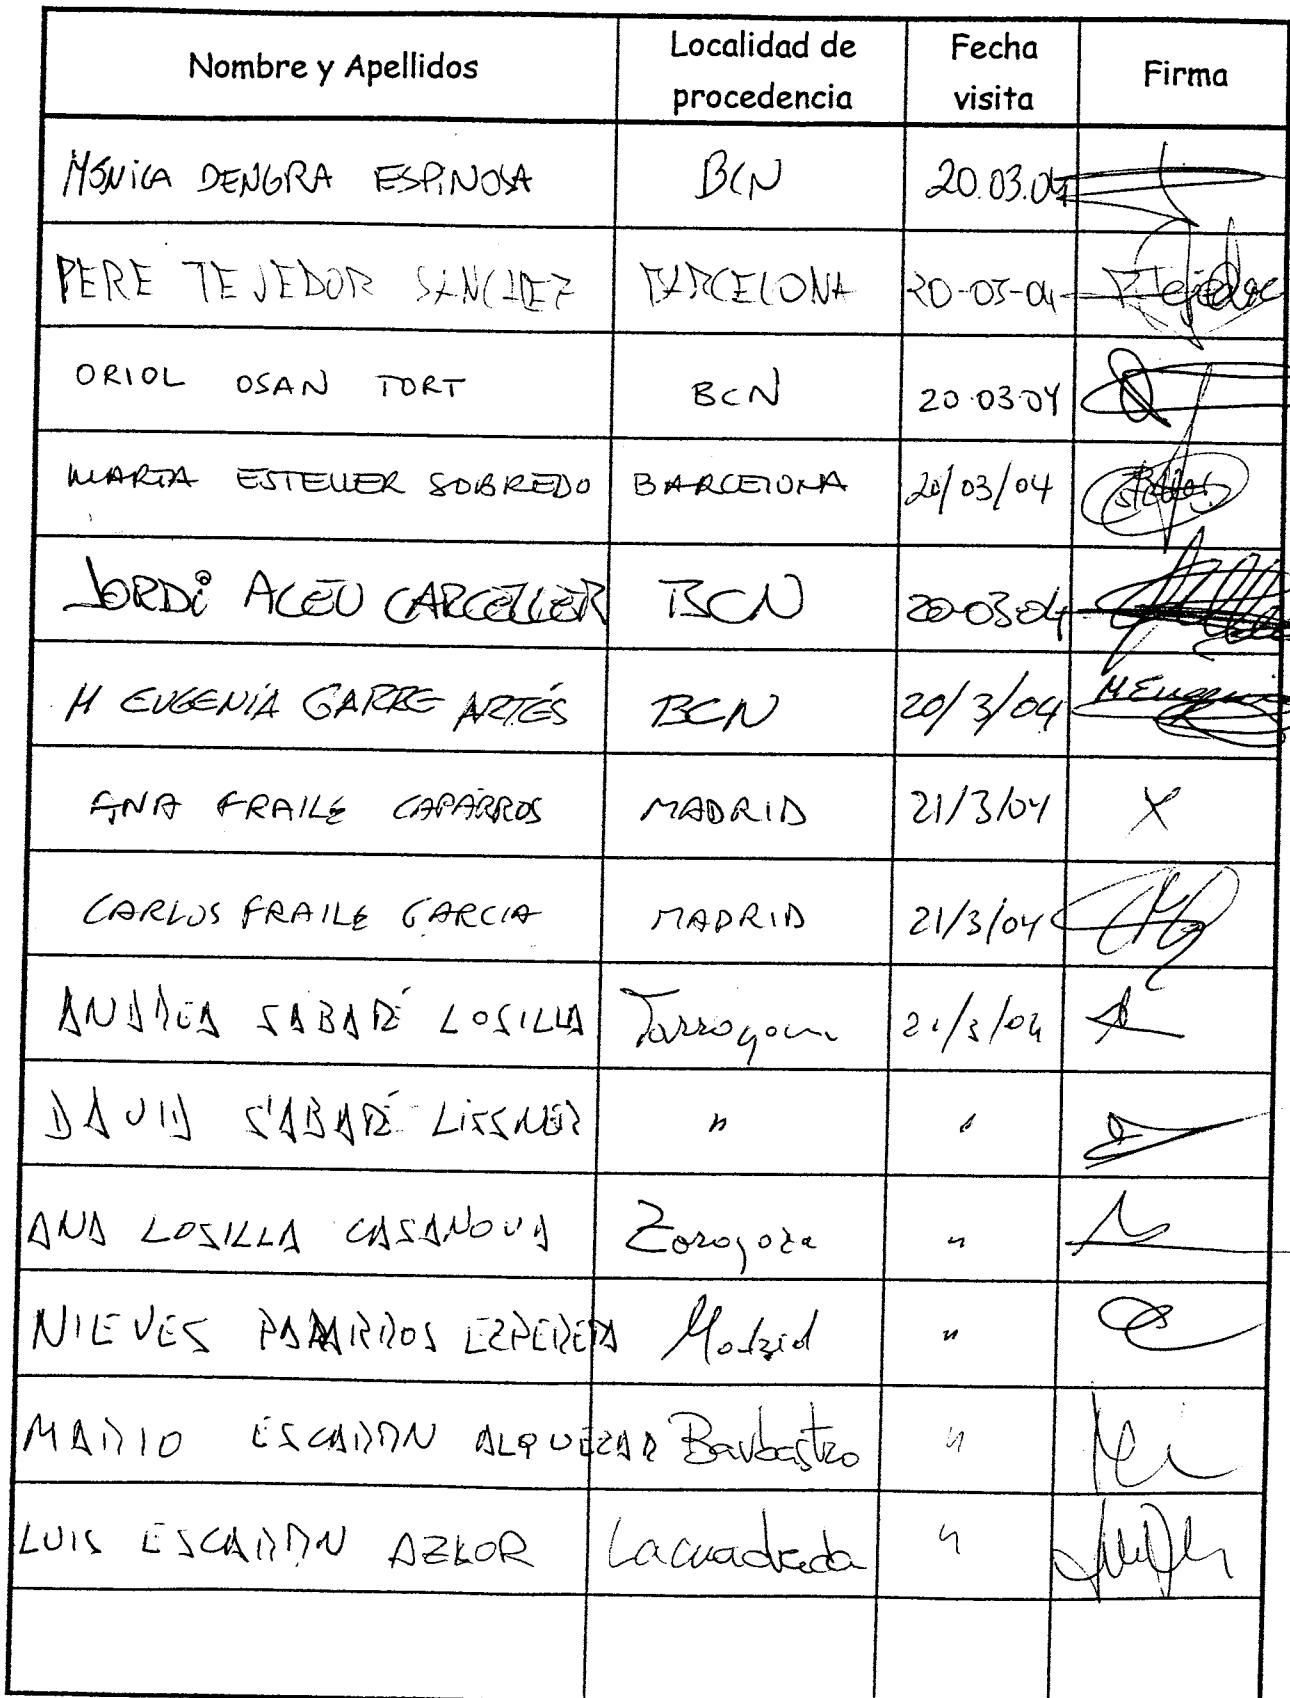 Nombre y Apellidos Localidad de procedencia Fecha visita Firma
MÓNICA DENGRA ESPINOSA BCN 20.03.04
PERE TEJEDOR SÁNCHEZ BARCELONA 20-03-04 P. Tejedor
ORIOL OSAN TORT BCN 20.03.04
MARTA ESTELLER SOBREDO BARCELONA 20/03/04
JORDi ACEU CARCELLER BCN 20-03-04
M EUGENIA GARRE ARTÉS BCN 20/3/04 M Eugenia
ANA FRAILE CAPARROS MADRID 21/3/04 X
CARLOS FRAILE GARCIA MADRID 21/3/04
ANDREA SABATÉ LOSILLA Tarragona 21/3/04
DAVID SABATÉ LISSNER " "
ANA LOSILLA CASANOVA Zaragoza "
NIEVES Madrid "
MARIO ESCARTIN ALQUEZAR Barbastro "
LUIS ESCARTIN AZKOR Lacuadrada "